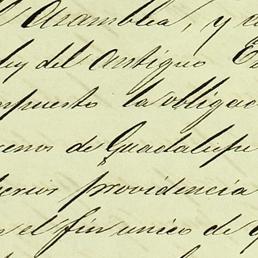 Asamblea, y
ley del antiguo
impuesto la obligac
renos de Guadalupe
providencia
el fin unico de